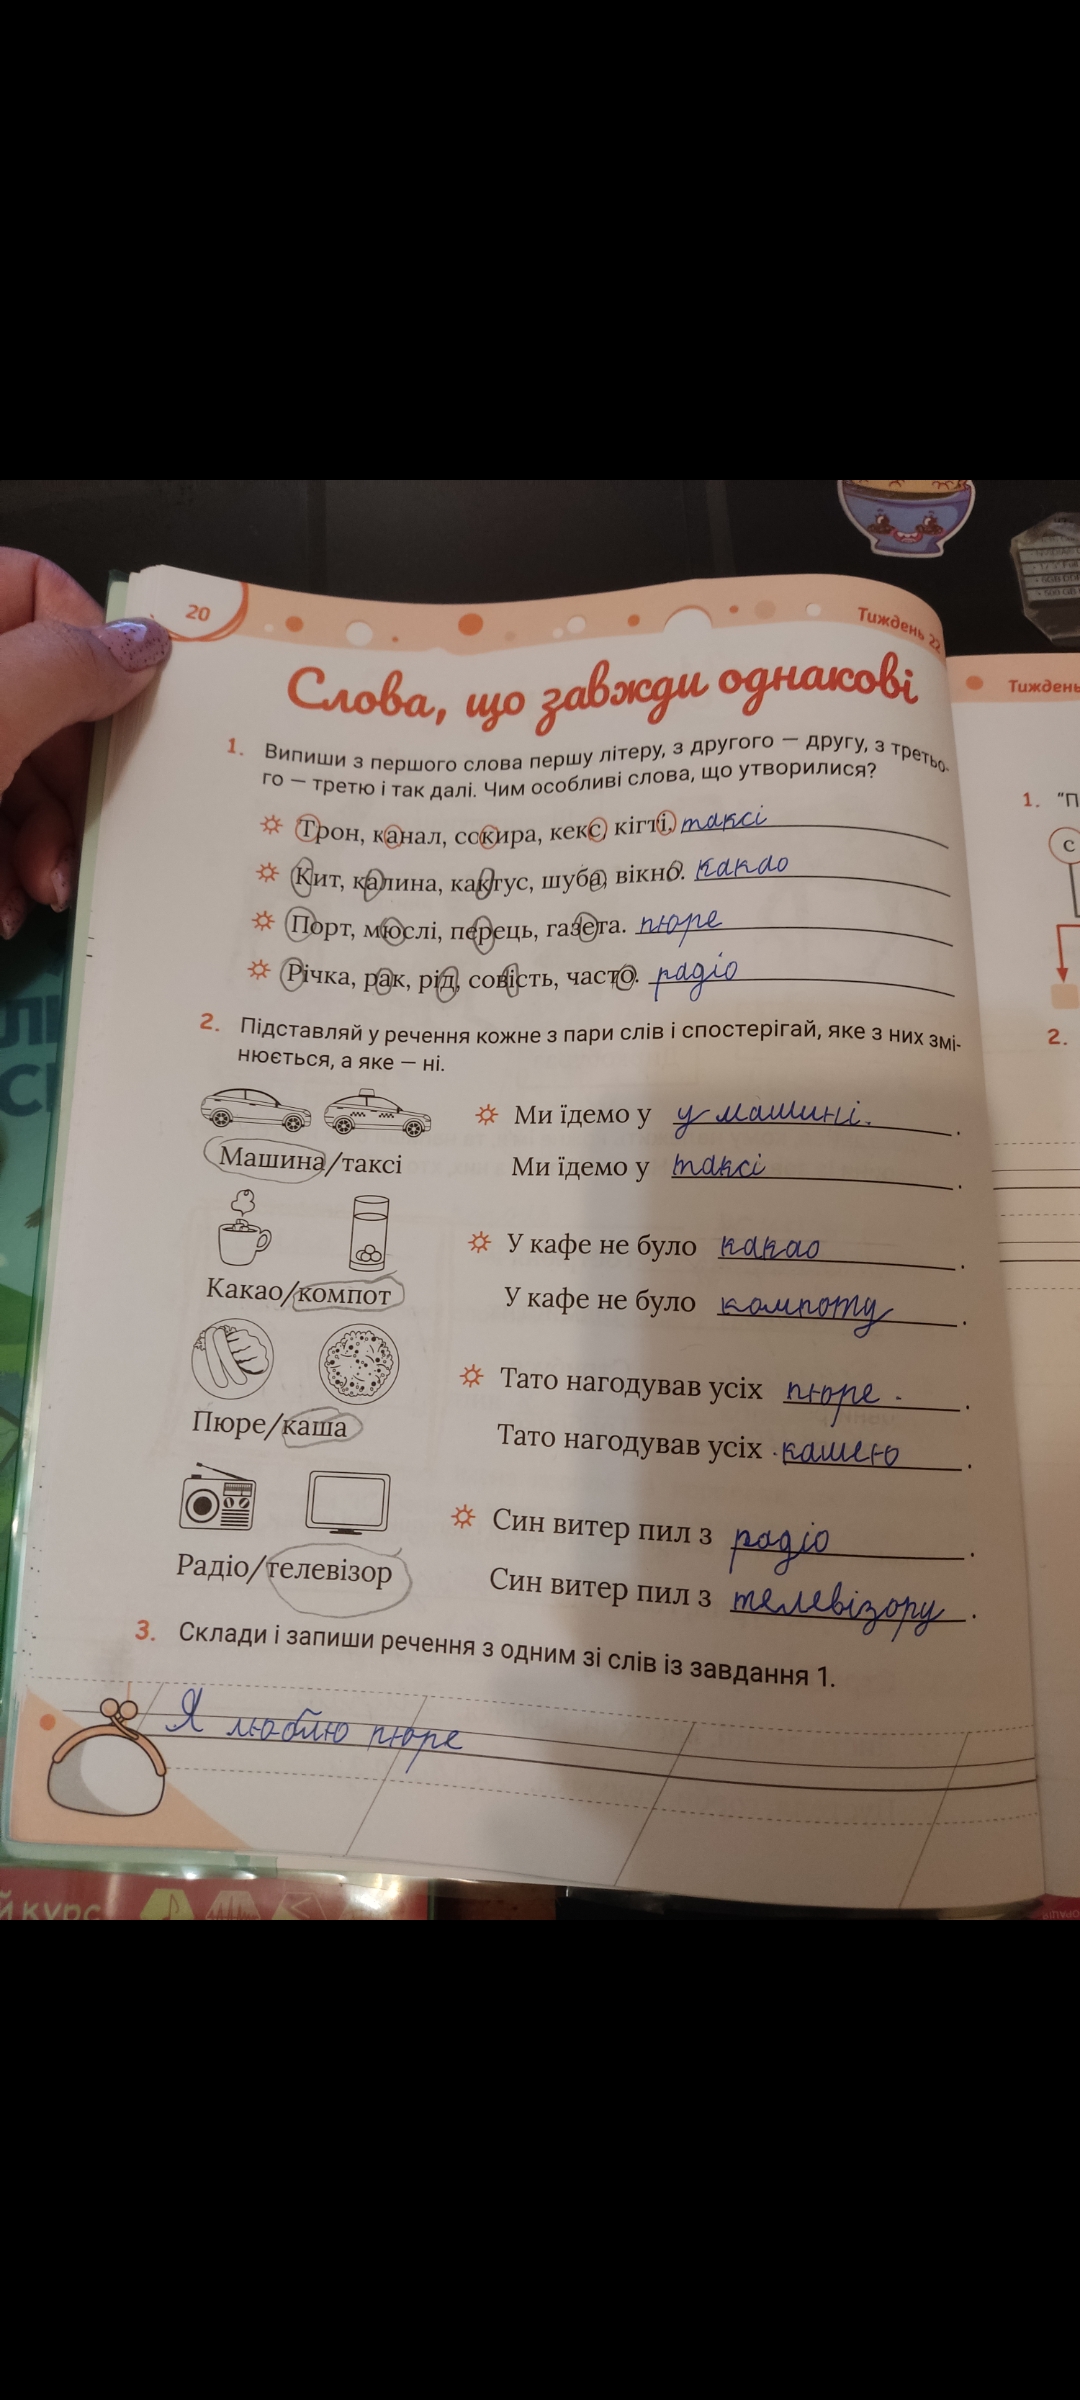 20
Тиждень 22
Слова, що завжди однакові
Тиждень
1. Випиши з першого слова першу літеру, з другого — другу, з третьо-
го — третю і так далі. Чим особливі слова, що утворилися?
Трон, канал, сокира, кекс, кігті. таксі
Кит, калина, кактус, шуба, вікно. какао
Порт, мюслі, перець, газета. пюре
Річка, рак, рід, совість, часто. радіо
2. Підставляй у речення кожне з пари слів і спостерігай, яке з них змі-
нюється, а яке — ні.
Ми їдемо у у машині.
Машина/таксі
Ми їдемо у таксі.
У кафе не було какао.
Какао/компот
У кафе не було компоту.
Тато нагодував усіх пюре.
Пюре/каша
Тато нагодував усіх кашею.
Син витер пил з радіо.
Радіо/телевізор
Син витер пил з телевізору.
3. Склади і запиши речення з одним зі слів із завдання 1.
Я люблю пюре
1. "П
с
2.
й курс